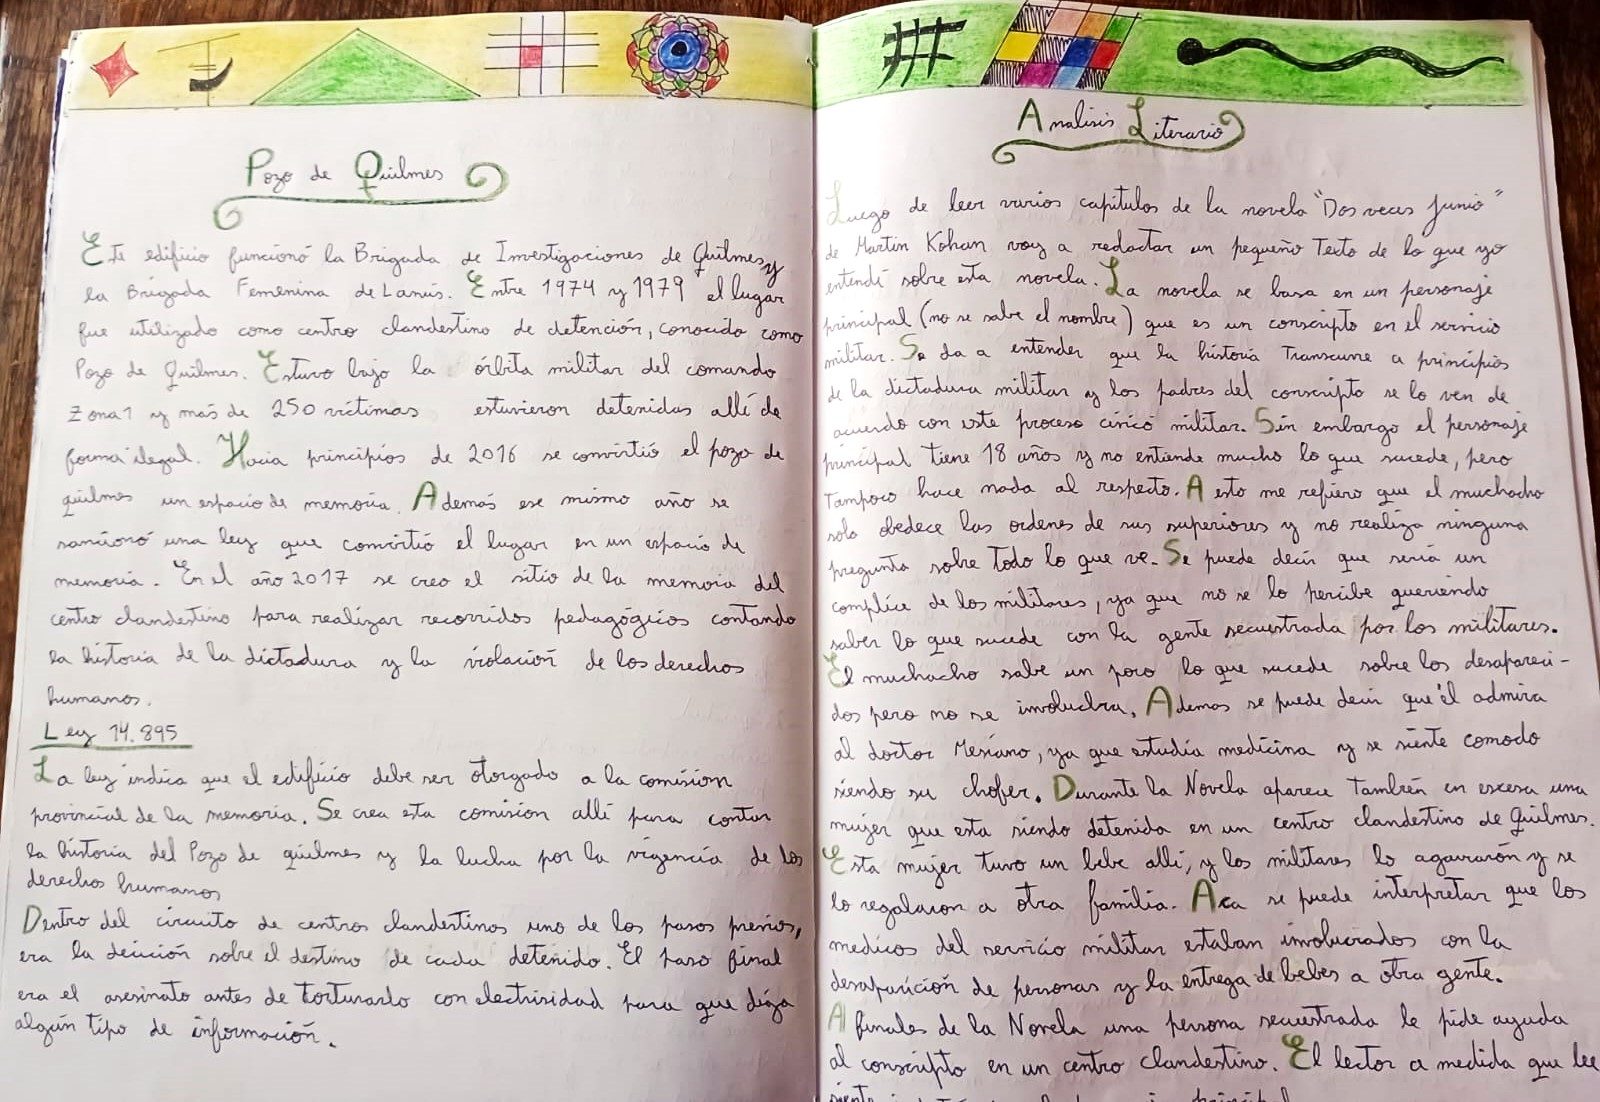 Pozo de Quilmes
Este edificio funcionó la Brigada de Investigaciones de Quilmes y
la Brigada Femenina de Lanús. Entre 1974 y 1979 el lugar
fue utilizado como centro clandestino de detención, conocido como
Pozo de Quilmes. Estuvo bajo la órbita militar del comando
Zona 1 y más de 250 víctimas estuvieron detenidas allí de
forma ilegal. Hacia principios de 2016 se convirtió el pozo de
quilmes un espacio de memoria. Además ese mismo año se
sancionó una ley que convirtió el lugar en un espacio de
memoria. En el año 2017 se creo el sitio de la memoria del
centro clandestino para realizar recorridos pedagógicos contando
la historia de la dictadura y la violación de los derechos
humanos.
Ley 14.895
La ley indica que el edificio debe ser otorgado a la comisión
provincial de la memoria. Se crea esta comisión allí para contar
la historia del Pozo de quilmes y la lucha por la vigencia de los
derechos humanos
Dentro del circuito de centros clandestinos uno de los pasos previos,
era la decición sobre el destino de cada detenido. El paso final
era el asesinato antes de torturarlo con electrisidad para que diga
algún tipo de información.
Analisis Literario
Luego de leer varios capítulos de la novela "Dos veces junio"
de Martín Kohan voy a redactar un pequeño Texto de lo que yo
entendí sobre esta novela. La novela se basa en un personaje
principal (no se sabe el nombre) que es un conscripto en el servicio
militar. Se da a entender que la historia Transcurre a principios
de la dictadura militar y los padres del conscripto se lo ven de
acuerdo con este proceso cívicó militar. Sin embargo el personaje
principal tiene 18 años y no entiende mucho lo que sucede, pero
Tampoco hace nada al respecto. A esto me refiero que el muchacho
solo obedece las ordenes de sus superiores y no realiza ninguna
pregunta sobre todo lo que ve. Se puede decir que sería un
complice de los militares, ya que no se lo percibe queriendo
saber lo que sucede con la gente secuestrada por los militares.
El muchacho sabe un poco lo que sucede sobre los desapareci-
dos pero no se involuclra. Ademas se puede decir que él admira
al doctor Mesiano, ya que estudia medicina y se siente comodo
siendo su chofer. Durante la Novela aparece también en escesa una
mujer que esta siendo detenida en un centro clandestino de Quilmes.
Esta mujer tuvo un bebe alli, y los militares lo agarrarón y se
lo regalaron a otra familia. Aca se puede interpretar que los
medicos del servicio militar estaban involucrados con la
desaparición de personas y la entrega de bebes a otra gente.
A finales de la Novela una persona secuestrada le pide ayuda
al conscripto en un centro clandestino. El lector a medida que lee